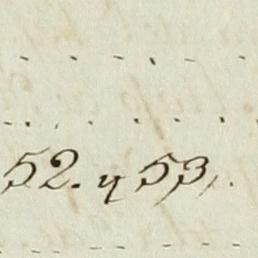 52. y 53,.